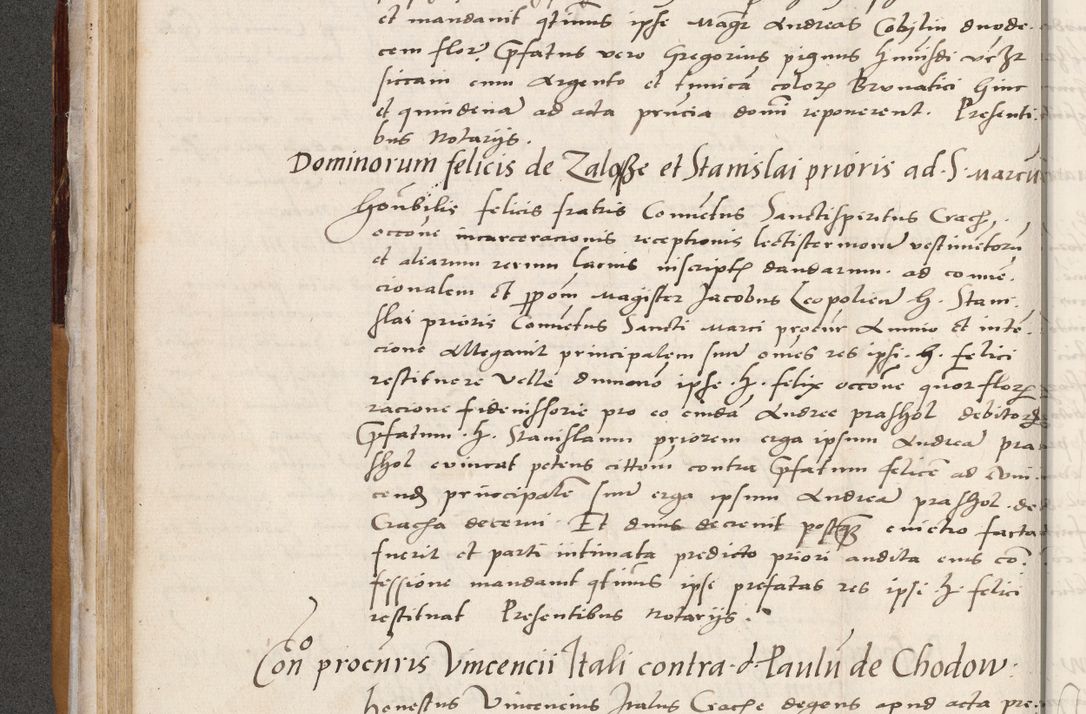 et mandavit qtinus ipse Magr Andreas Cobilin duode-
cem flor. Prefatus vero Gregorius pignus hmoi vz
siccam cum Argento et tunica color Brunatici hinc
et quindena ad acta pncia domi reponerent. Presenti-
bus Notarijs.
Dominorum felicis de Zalosze et Stanislai prioris ad S. Marcu
Honbilis felicis fratris Conuetus Sanctispiritus Crach.
occone incarceracionis receptionis lectisterniorum vestimetoru
et aliarum rerum lacius inscript dandarum. ad conue-
cionalem et ppom Magister Jacobus Leopolien h. Stani-
slai prioris Conuetus Sancti Marci procur Animo et inte-
cione Allegauit principalem suu omes res ipsi h. felici
restituere velle dumodo ipse h. felix occone quor flor
racione fideiussorie pro eo cuida Andree prashol debitor
Prefatum h. Stanislaum priorem erga ipsum Andrea pra-
shol euincat petens cittom contra Prefatum felice ad euin-
cend principale suu erga ipsum Andrea prashol de
Cracha decerni. Et dnus decreuit postq euictio facta
fuerit et parti intimata predicto priori audita eius co-
fessione mandauit qtinus ipse prefatas res ipsi h. felici
restituat Presentibus Notarijs.
Con procuris Vincencii Itali contra d. Paulu de Chodow.
Honestus Vincencius Italus Crache degens apud acta pre-